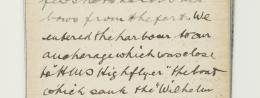 bows from the forts. We
entered the harbour to our
anchorage which was close
to "H.M.S Highflyer" the boat
which sank the "Wilhelm